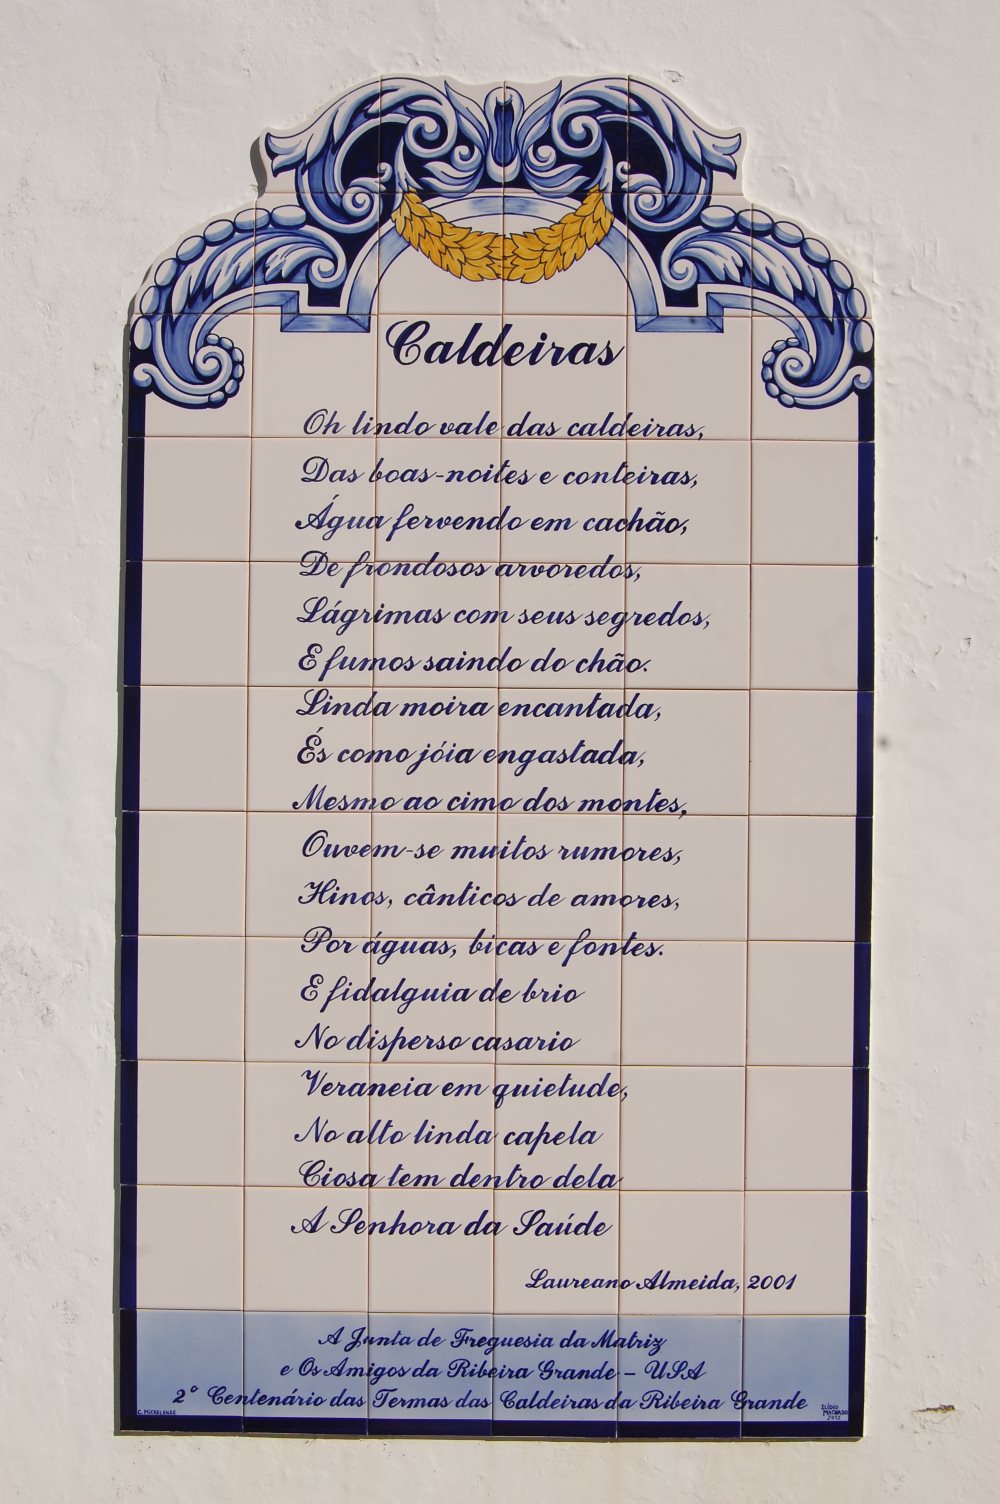 Caldeiras
Oh lindo vale das caldeiras,
Das boas-noites e conteiras,
Água fervendo em cachão,
De frondosos arvoredos,
Lágrimas com seus segredos,
E fumos saindo do chão.
Linda moira encantada,
És como jóia engastada,
Mesmo ao cimo dos montes,
Ouvem-se muitos rumores,
Hinos, cânticos de amores,
Por águas, bicas e fontes.
E fidalguia de brio
No disperso casario
Veraneia em quietude,
No alto linda capela
Ciosa tem dentro dela
A Senhora da Saúde
Laureano Almeida, 2001
A Junta de Freguesia da Matriz
e Os Amigos da Ribeira Grande - USA
2º Centenário das Termas das Caldeiras da Ribeira Grande
C. MICAELENSE
ILÍDIO
MACHADO
2012